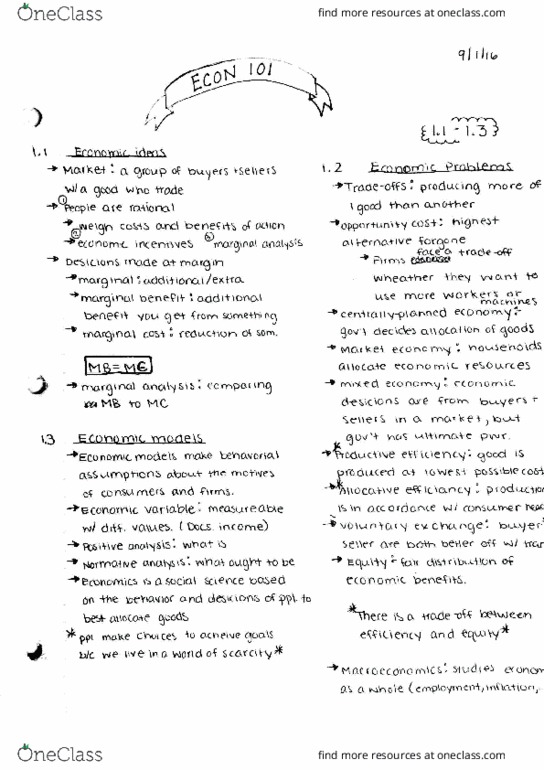 OneClass
find more resources at oneclass.com
9/1/16
ECON 101
{1.1 - 1.3}
1.1 Economic ideas
→ Market: a group of buyers + sellers
w/ a good who trade
→ ① People are rational
→ weigh costs and benefits of action
→ ② economic incentives ③ marginal analysis
→ Desicions made at margin
→ marginal: additional/extra
→ marginal benefit: additional
benefit you get from something
→ marginal cost: reduction of som.
MB = MC
→ marginal analysis: comparing
MB to MC
1.3 Economic models
→ Economic models make behavorial
assumptions about the motives
of consumers and firms.
→ Economic variable: measureable
w/ diff. values. (Docs. income)
→ Positive analysis: what is
→ Normative analysis: what ought to be
→ Economics is a social science based
on the behavior and desicions of ppl to
best allocate goods
* ppl make choices to acheive goals
b/c we live in a world of scarcity *
1.2 Economic Problems
→ Trade-offs: producing more of
1 good than another
→ opportunity cost: highest
alternative forgone
→ Firms face a trade-off
wheather they want to
use more workers or
machines
→ centrally-planned economy:
gov't decides allocation of goods
→ Market economy: households
allocate economic resources
→ mixed economy: economic
desicions are from buyers +
sellers in a market, but
gov't has ultimate pwr.
* Productive efficiency: good is
produced at lowest possible cost
* Allocative efficiancy: production
is in accordance w/ consumer
→ voluntary exchange: buyer
seller are both better off w/
→ Equity: fair distribution of
economic benefits.
* There is a trade off between
efficiency and equity *
→ Macroeconomics: studies econom
as a whole (employment, inflation,
OneClass
find more resources at oneclass.com